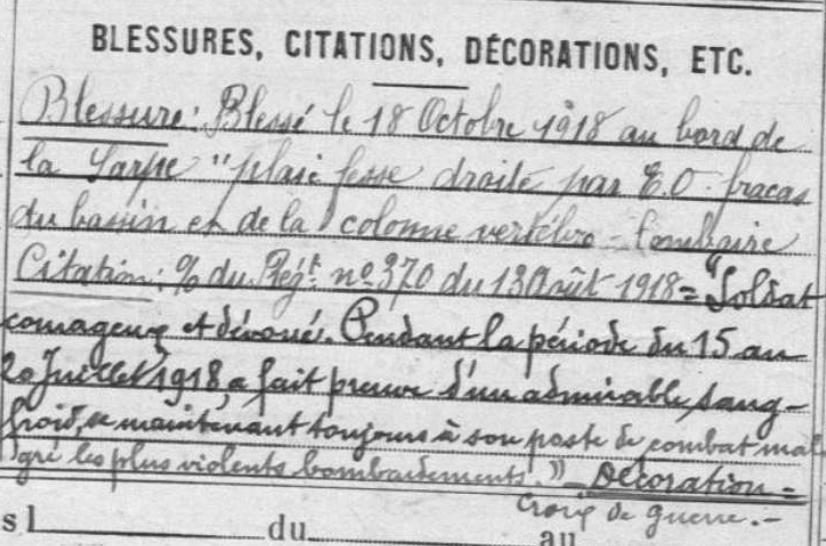 BLESSURES, CITATIONS, DÉCORATIONS, ETC.
Blessure: Blessé le 18 Octobre 1918 au bord de
la Sarpe "plaie fesse droite par E.O. fracas
du bassin et de la colonne vertébro-lombaire
Citation: % du Régt. nº 370 du 13 Août 1918 = "Soldat
courageux et dévoué. Pendant la période du 15 au
20 Juillet 1918, a fait preuve d'un admirable sang-
froid, se maintenant toujours à son poste de combat mal-
gré les plus violents bombardements." Décoration =
Croix de guerre.-
sl du au